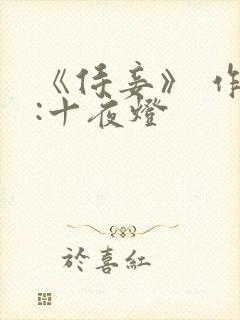 《侍妾》 作
:十夜燈
於喜紅